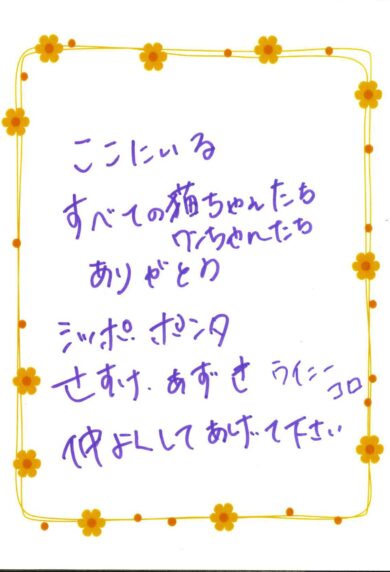 ここにいる
すべての猫ちゃんたち
ワンちゃんたち
ありがとう
シッポ.ポンタ
さすけ.あずき ライニー
コロ
仲よくしてあげて下さい